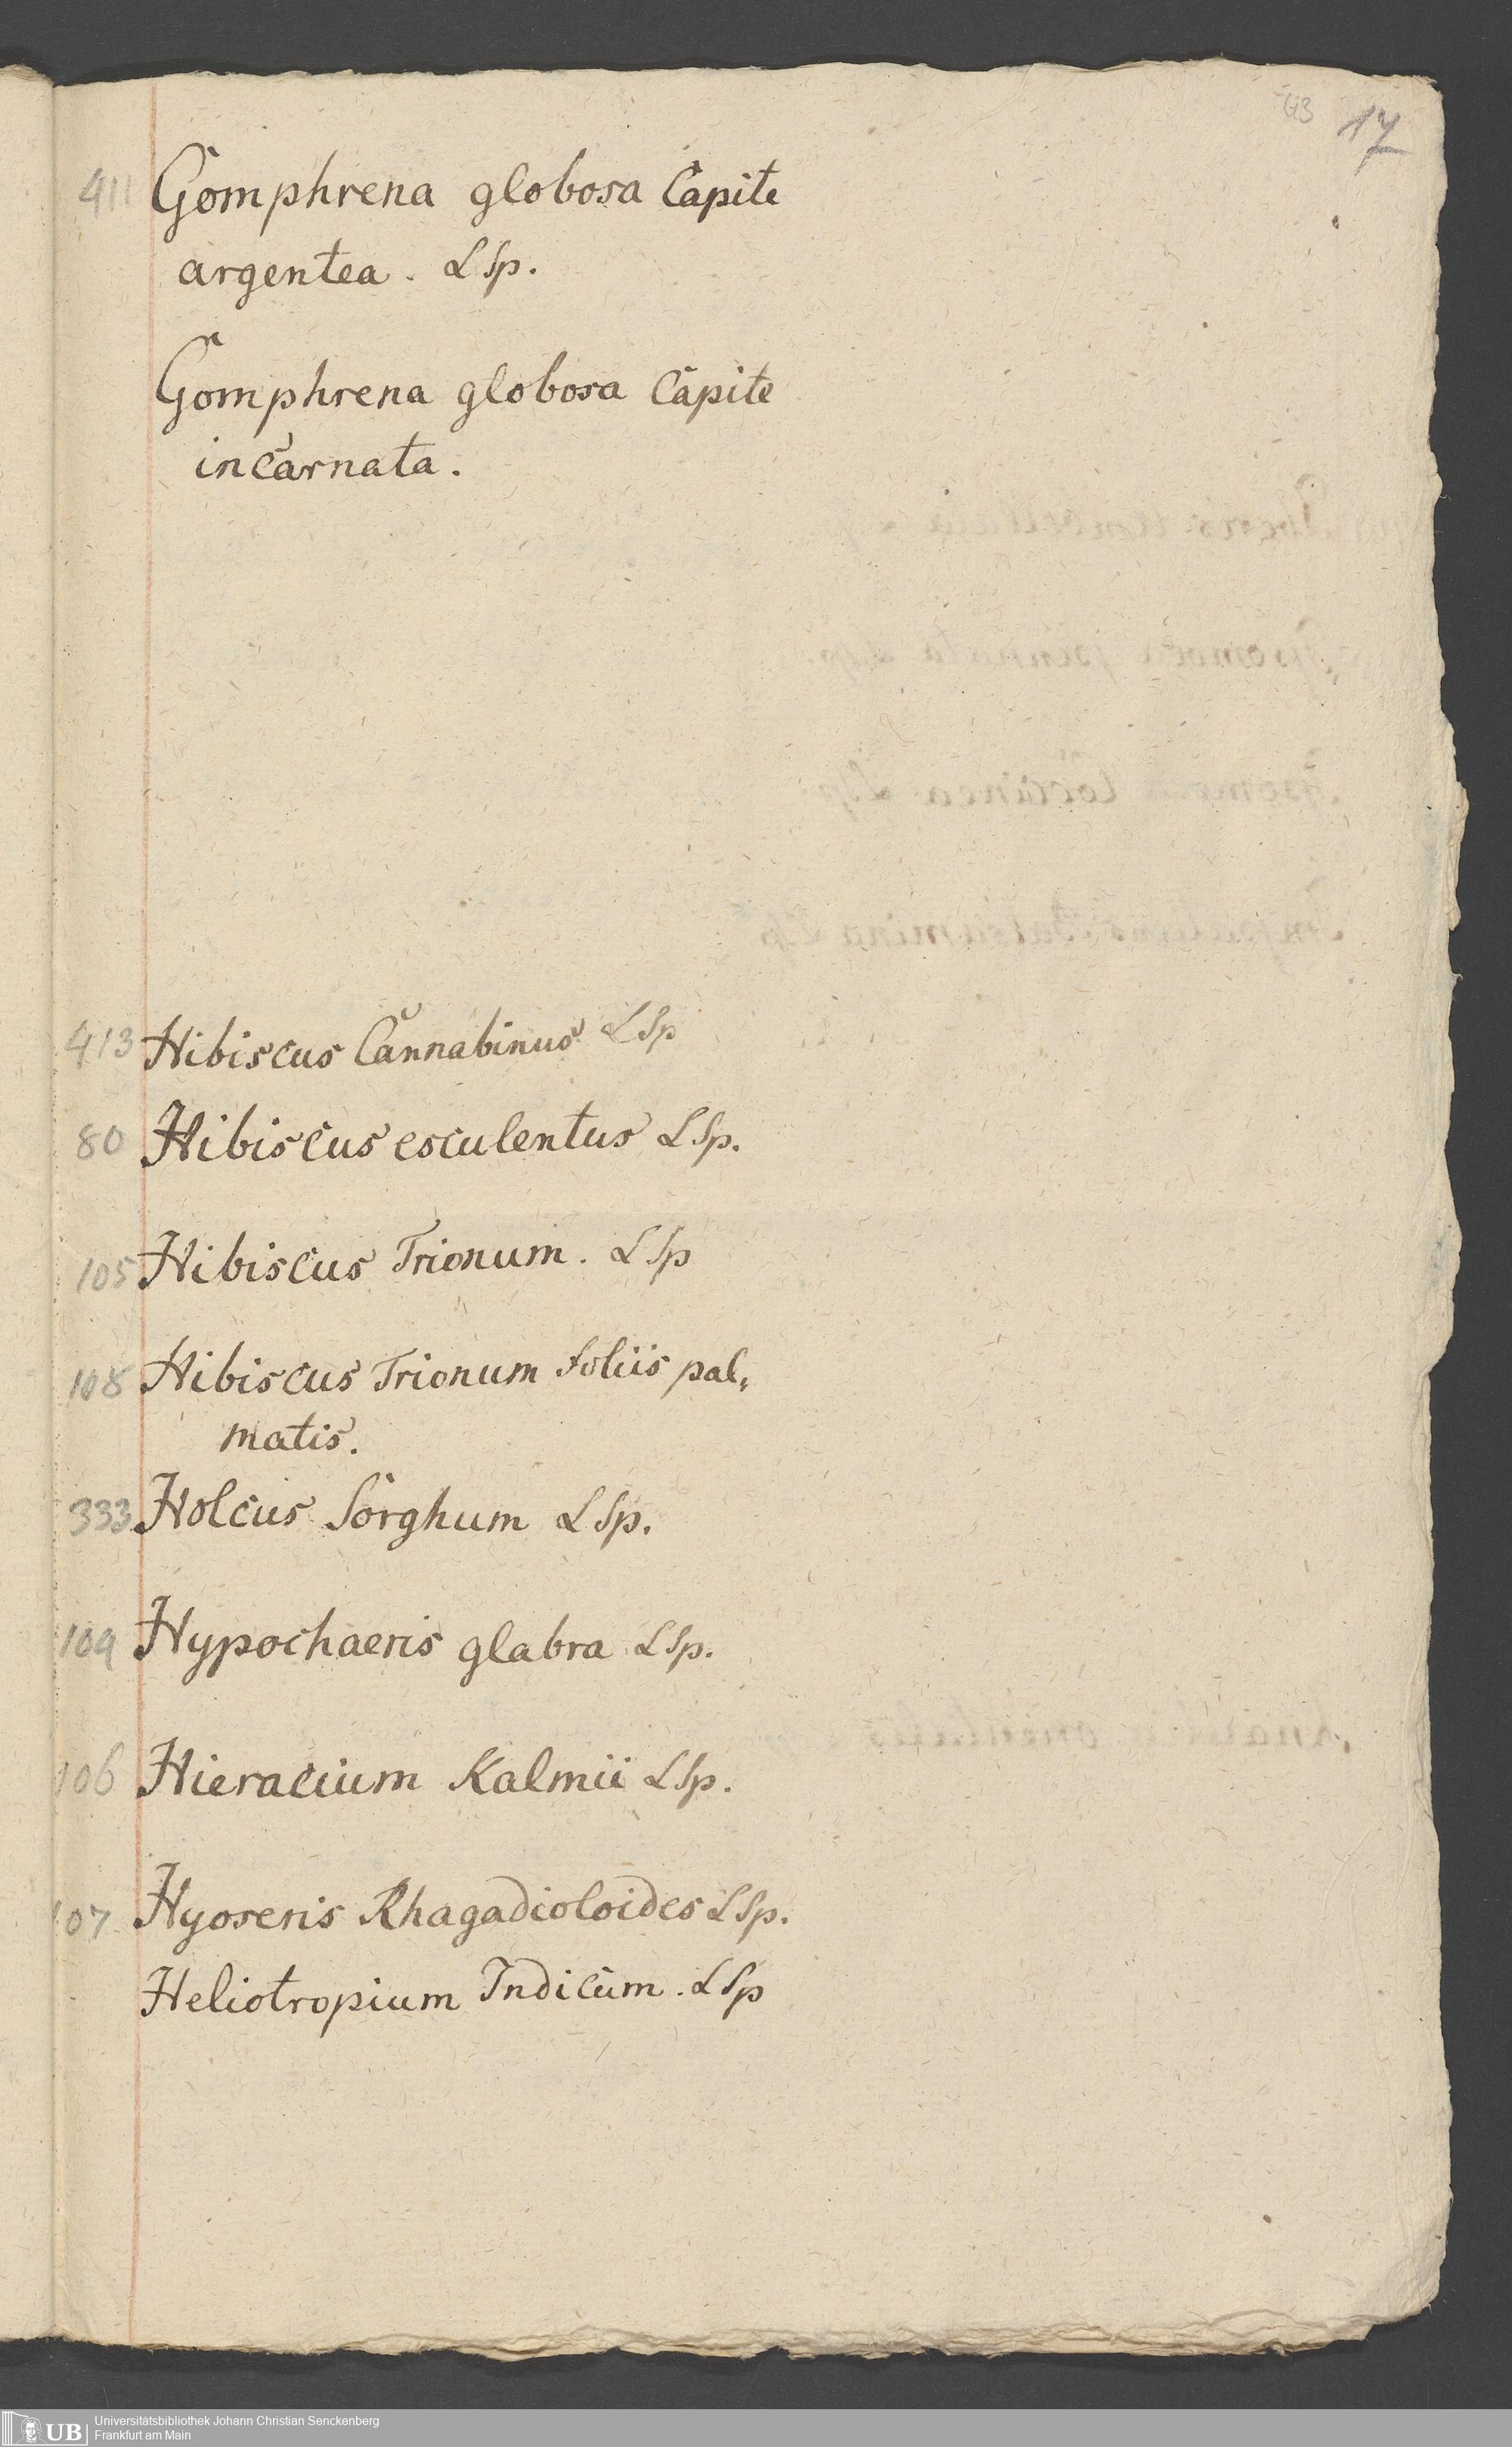 17
411 Gomphrena globosa Capite
argentea. L Sp.
Gomphrena globosa Capite
incarnata.
413 Hibiscus Cannabinus L Sp
80 Hibiscus esculentus L Sp.
105 Hibiscus Trionum. L Sp
108 Hibiscus Trionum foliis pal,
matis.
333 Holcus Sorghum L Sp.
109 Hypochaeris glabra L Sp.
106 Hieracium Kalmii L Sp.
107 Hyoseris Rhagadioloides L Sp.
Heliotropium Indicum. L Sp
UB
Universitätsbibliothek Johann Christian Senckenberg
Frankfurt am Main